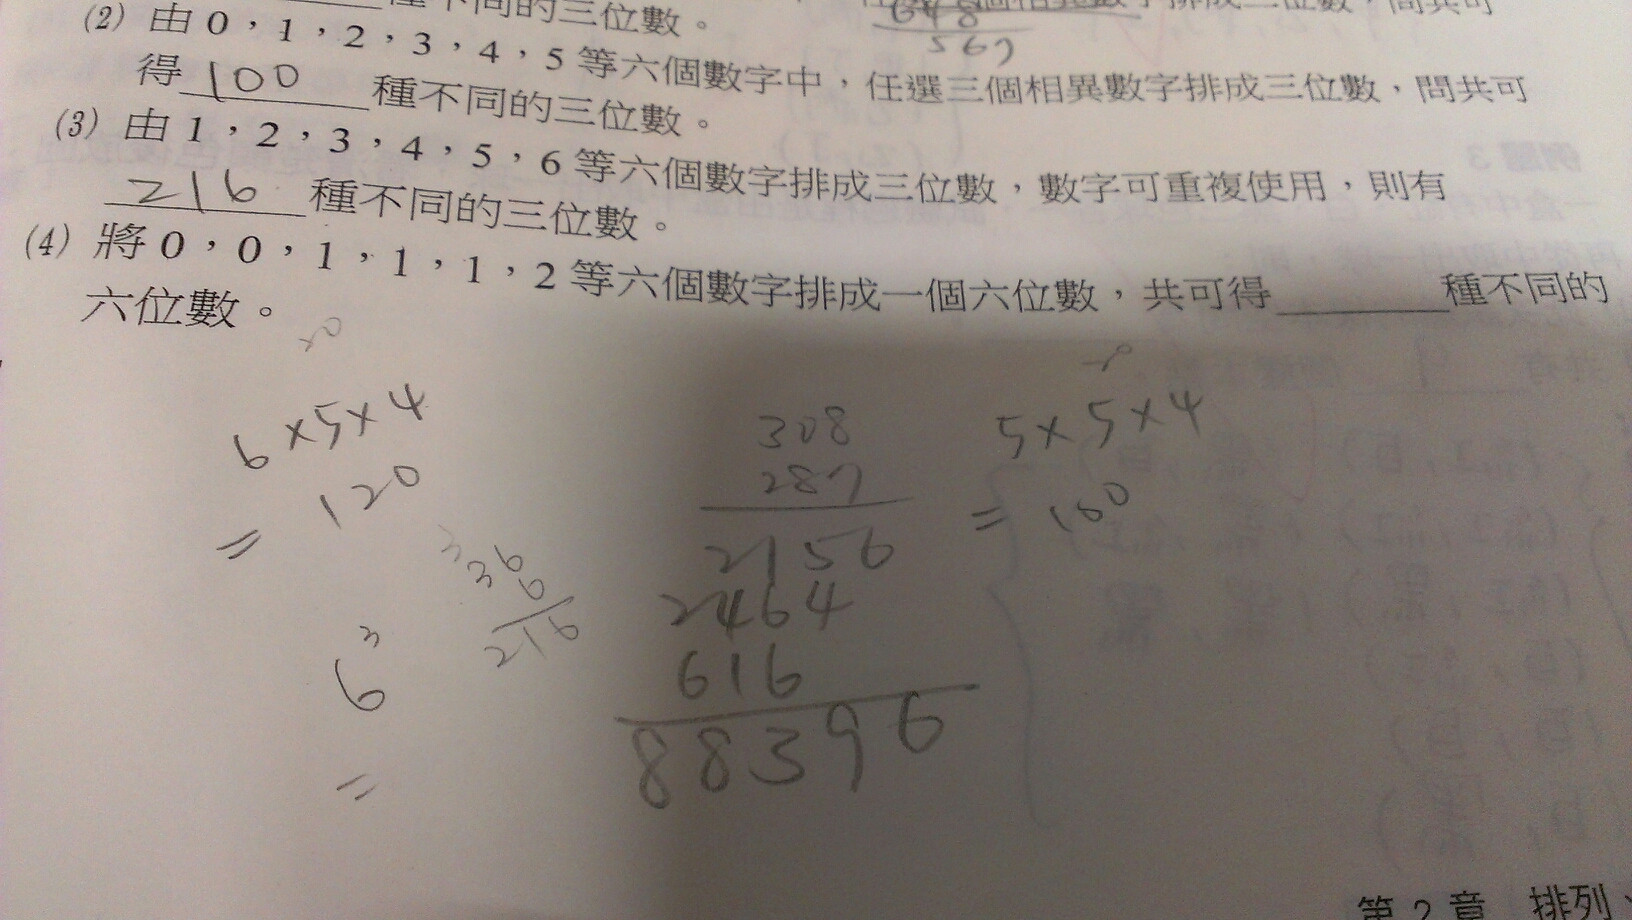 種不同的三位數。
(2) 由0,1,2,3,4,5等六個數字中,任選三個相異數字排成三位數,問共可
648
567
得 100 種不同的三位數。
(3) 由1,2,3,4,5,6等六個數字排成三位數,數字可重複使用,則有
216 種不同的三位數。
(4) 將0,0,1,1,1,2等六個數字排成一個六位數,共可得________種不同的
六位數。
6×5×4
=120
6³
=
36
6
216
308
287
2156
2464
616
88396
5×5×4
=100
第2章 排列、